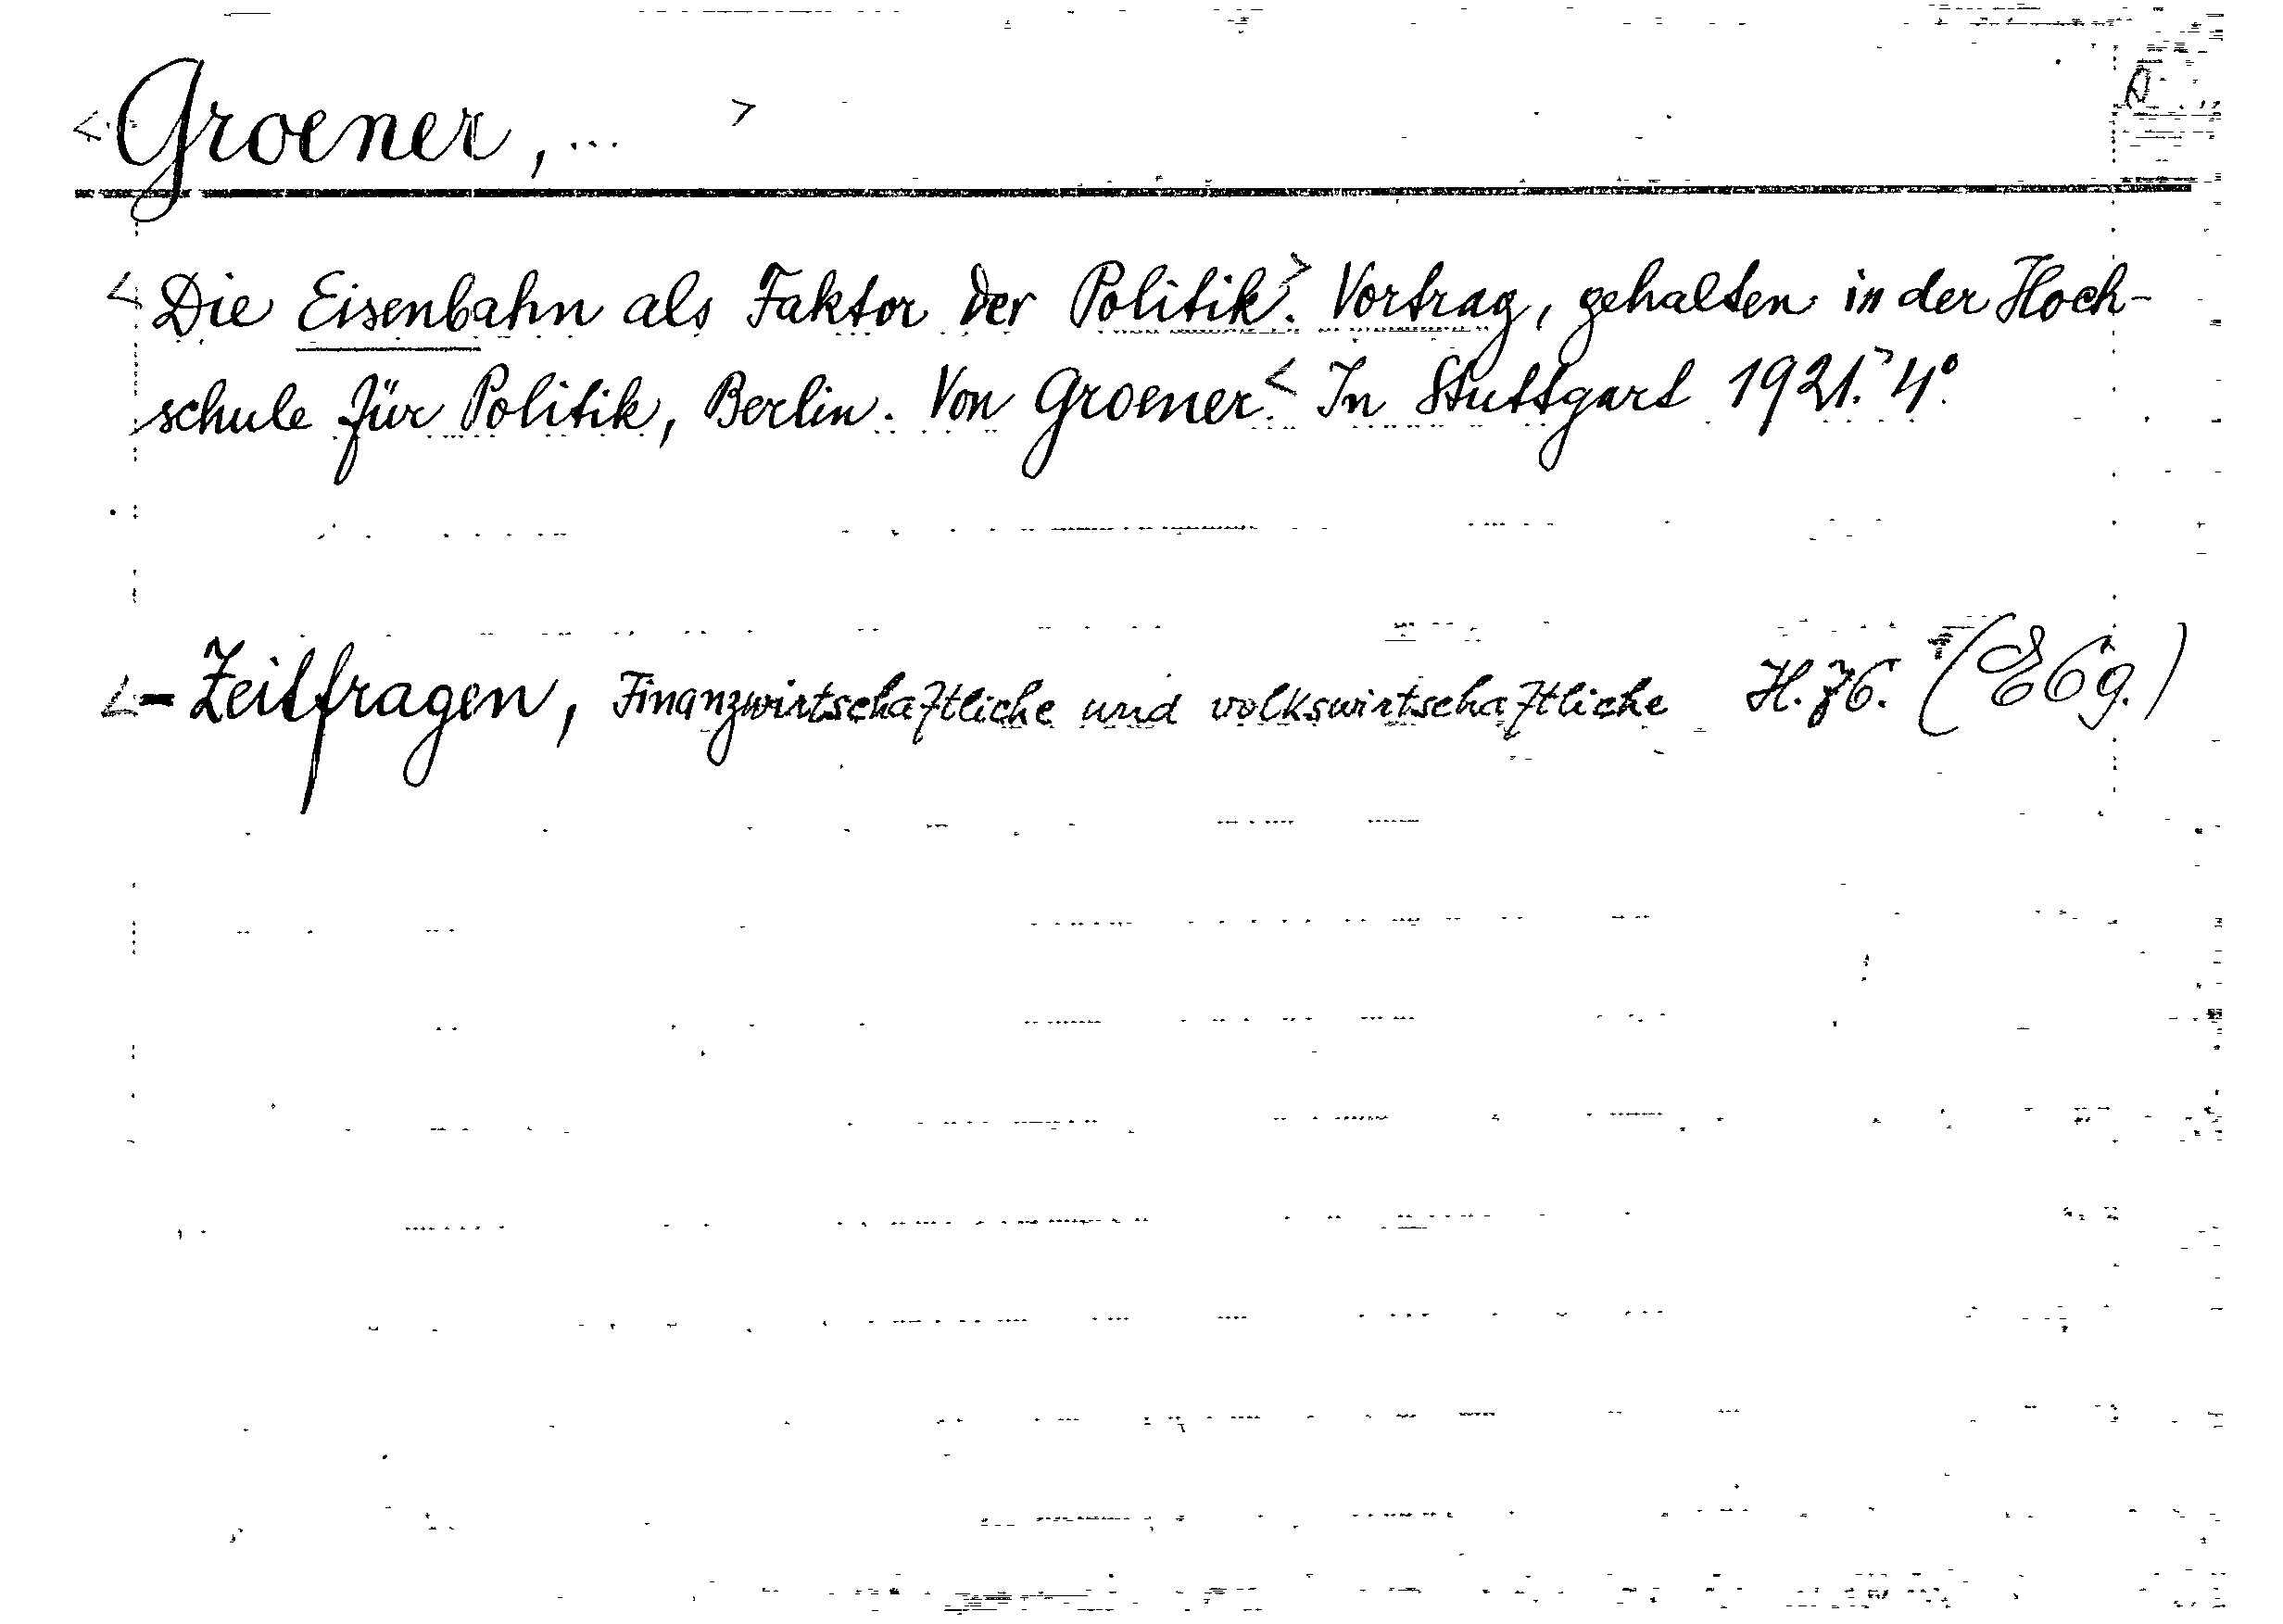 <Groener, ... >
<Die Eisenbahn als Faktor der Politik>. Vortrag, gehalten in der Hoch-
schule für Politik, Berlin. Von Groener.< In Stuttgart 1921.> 4°.
<- Zeitfragen, Finanzwirtschaftliche und volkswirtschaftliche H. 76. > (E6g.)